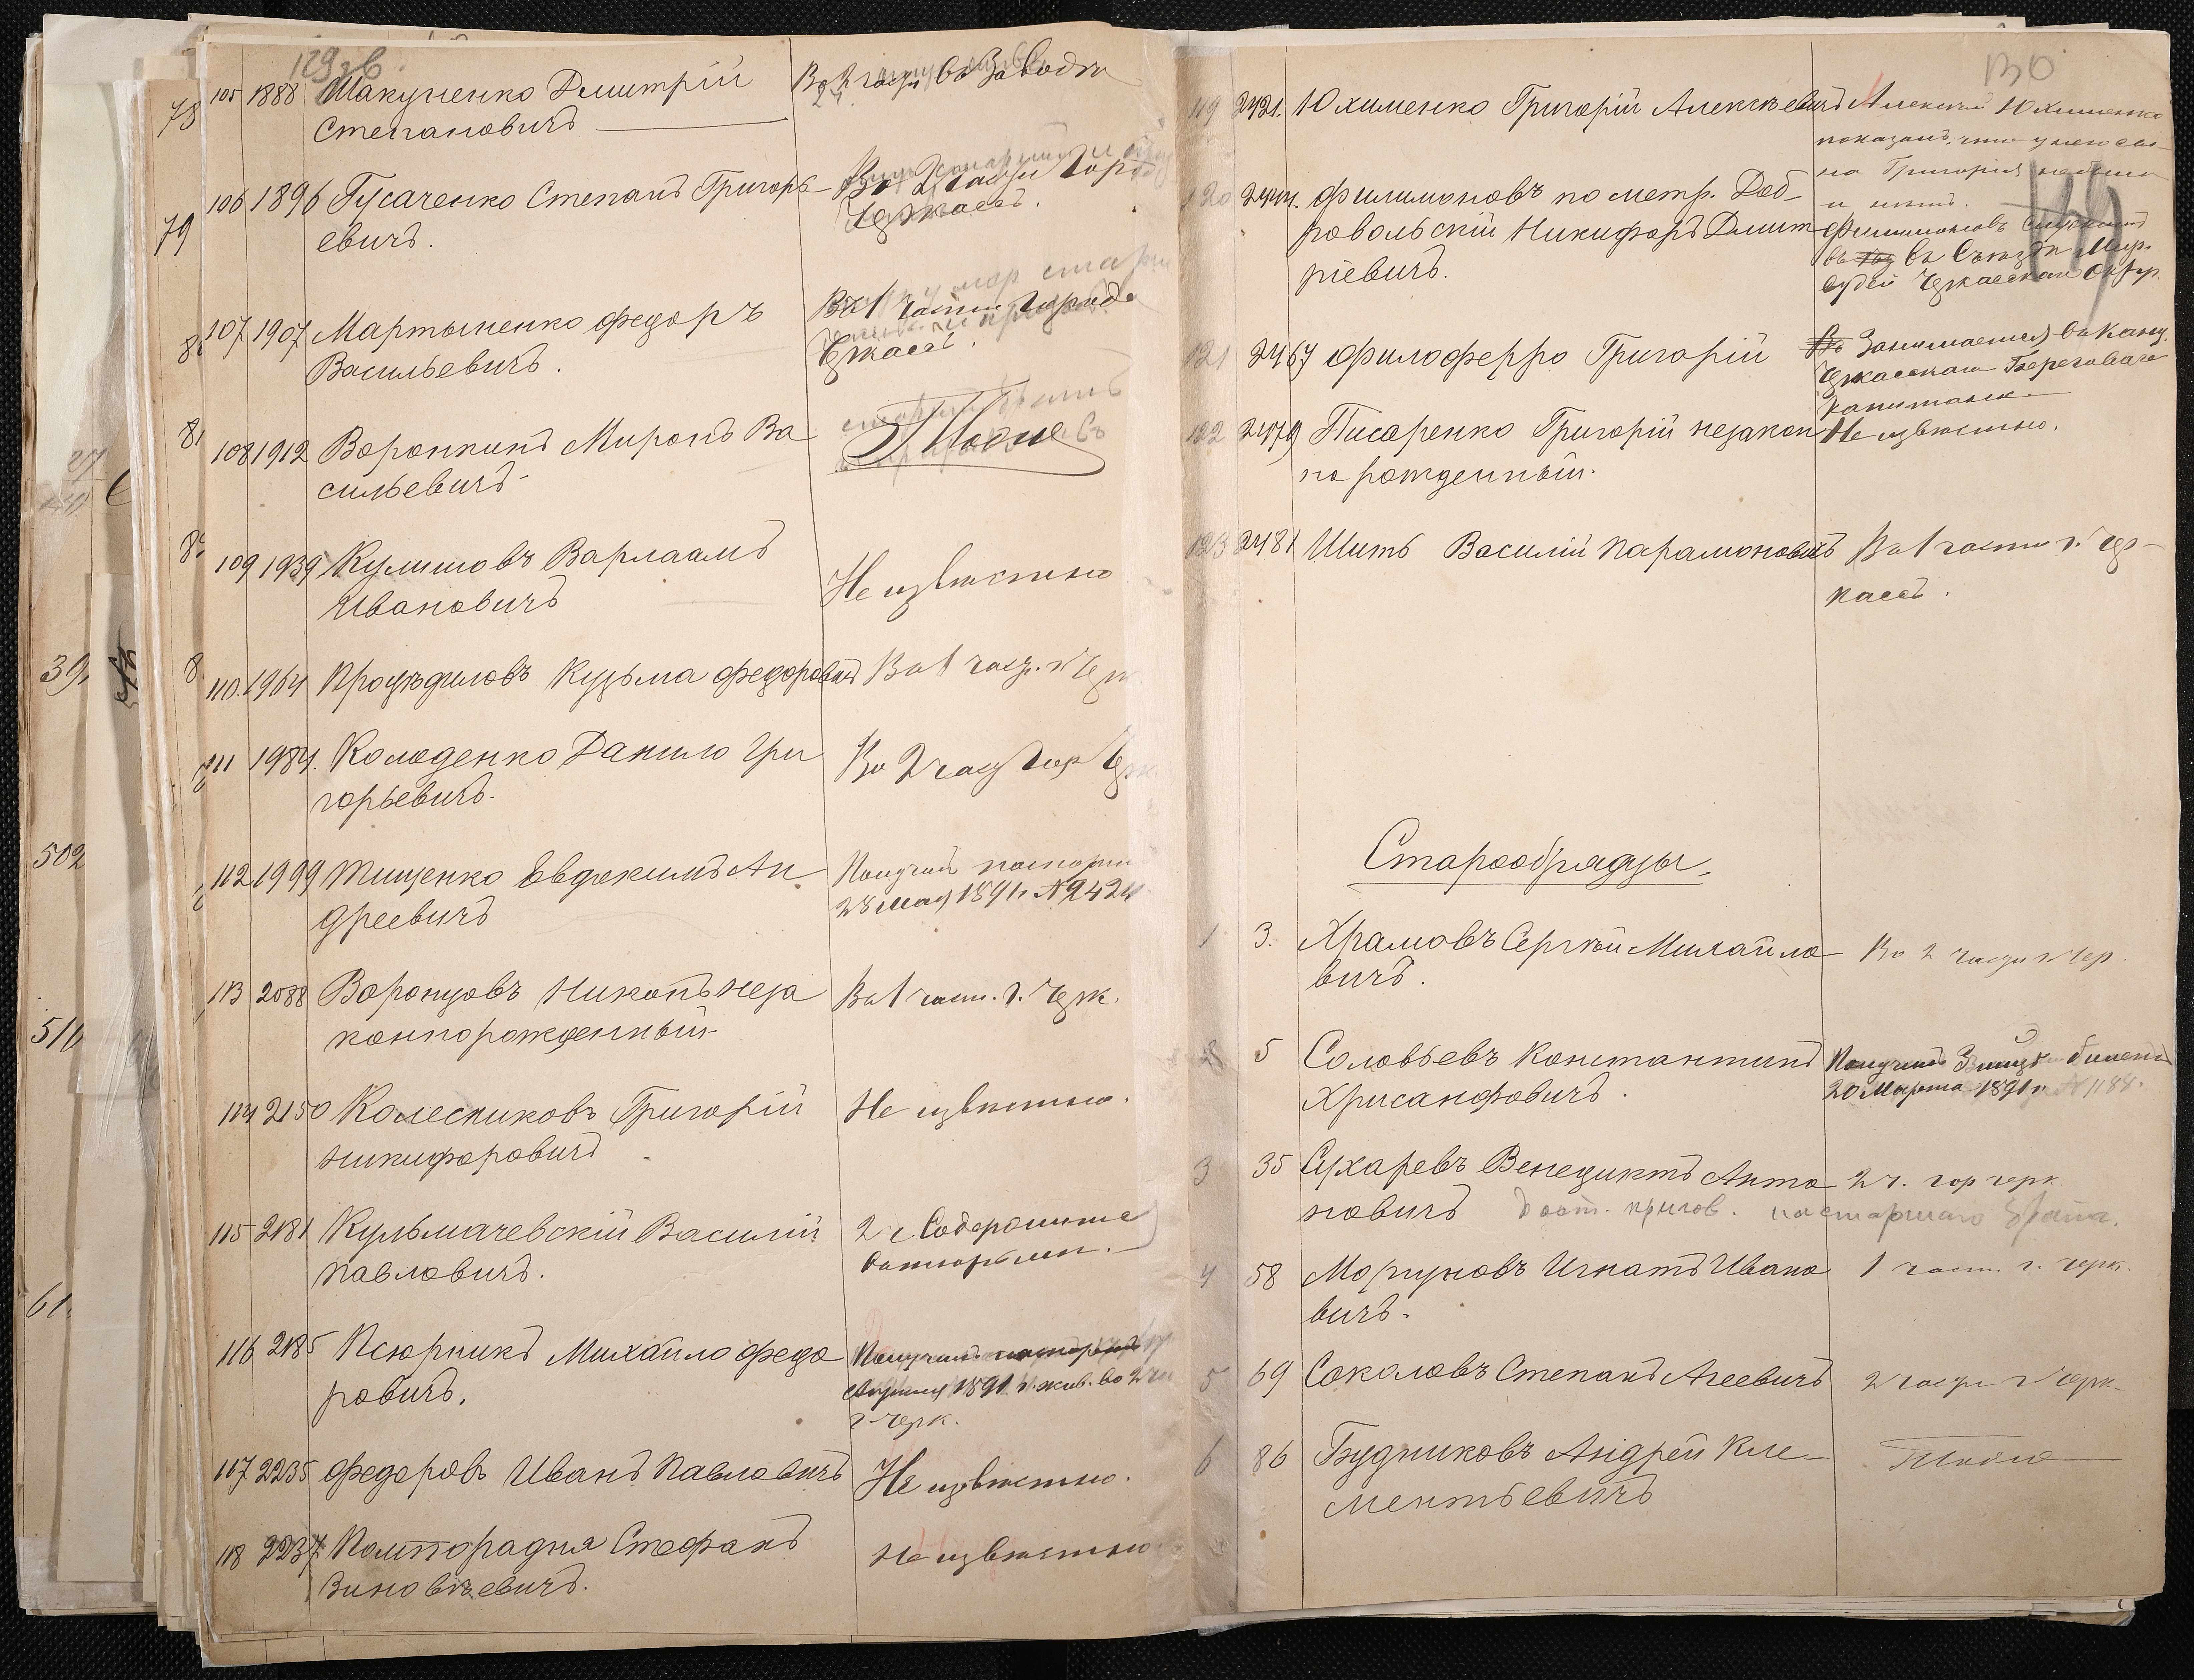 129 зв.
78
105 1888 Макуненко Дмитрій
Степановичъ
79
106 1896 Гусаченко Степанъ Григорь
евичъ.
Черкассъ.
107 1907 Мартыненко Федоръ
Васильевичъ.
Въ 1 части города
Черкассъ.
81
108 1912 Воронкинъ Миронъ Ва
сильевичъ.
Тоже
109 1939 Кулишовъ Варлаамъ
Ивановичъ
Не извѣстно
39.
110. 1964 Кузьма Федоровичъ
Въ 1 част. г. Черк
111 1984. Колоденко Данило Гри
горьевичъ.
Во 2 част гор Черк
502
112 1999 Тищенко Евдокимъ Ан
дреевичъ
Получилъ паспортъ
28 Мая 1891 г. № 2424
113 2088 Воронцовъ Никонъ неза
коннорожденный
Въ 1 част. г. Черк.
516
114 2150 Колесниковъ Григорій
Никифоровичъ
Не извѣстно.
115 2181 Кульмачевскій Василій
Павловичъ.
2 ч
61.
116 2185 Псюрникъ Михайло Федо
ровичъ.
Получилъ паспортъ
1891 г. жив. во 2 ча
г. Черк.
117 2235 Федоровъ Иванъ Павловичъ
Не извѣстно.
118 2237 Стефанъ
Зиновѣевичъ.
Не извѣстно
130
119 2421. Юхименко Григорій Алексѣевичъ
Алексѣй Юхименко
показалъ, что у него сы-
на Григорія не было
и нѣтъ.
149
120 2444. Филимоновъ по метр. Доб-
ровольскій Никифоръ Дмит
ріевичъ.
Филимоновъ служитъ
въ Съѣздѣ Мир.
судей Черкасскаго Округ.
121 2467 Филоферро Григорій
Занимается въ Канц.
Черкасскаго Берегового
122 2479 Писаренко Григорій незакон
но рожденный.
Не извѣстно.
123 2481 Шить Василій Парамоновичъ
Въ 1 части г. Чер-
кассъ.
Старообрядцы.
1 3. Храмовъ Сергѣй Михайло
вичъ.
Во 2 части г. Чер.
2 5 Соловьевъ Константинъ
Хрисанфовичъ.
Получилъ билетъ
20 Марта 1891 г. № 1188.
3 35 Сухаревъ Венедиктъ Анто
новичъ
2 ч. гор черк
старшаго брата.
4 58 Моргуновъ Игнатъ Ивано
вичъ.
1 част. г. черк.
5 69 Соколовъ Степанъ Агеевичъ
2 части г Черк.
6 86 Будниковъ Андрей Кле-
ментьевичъ
Тоже